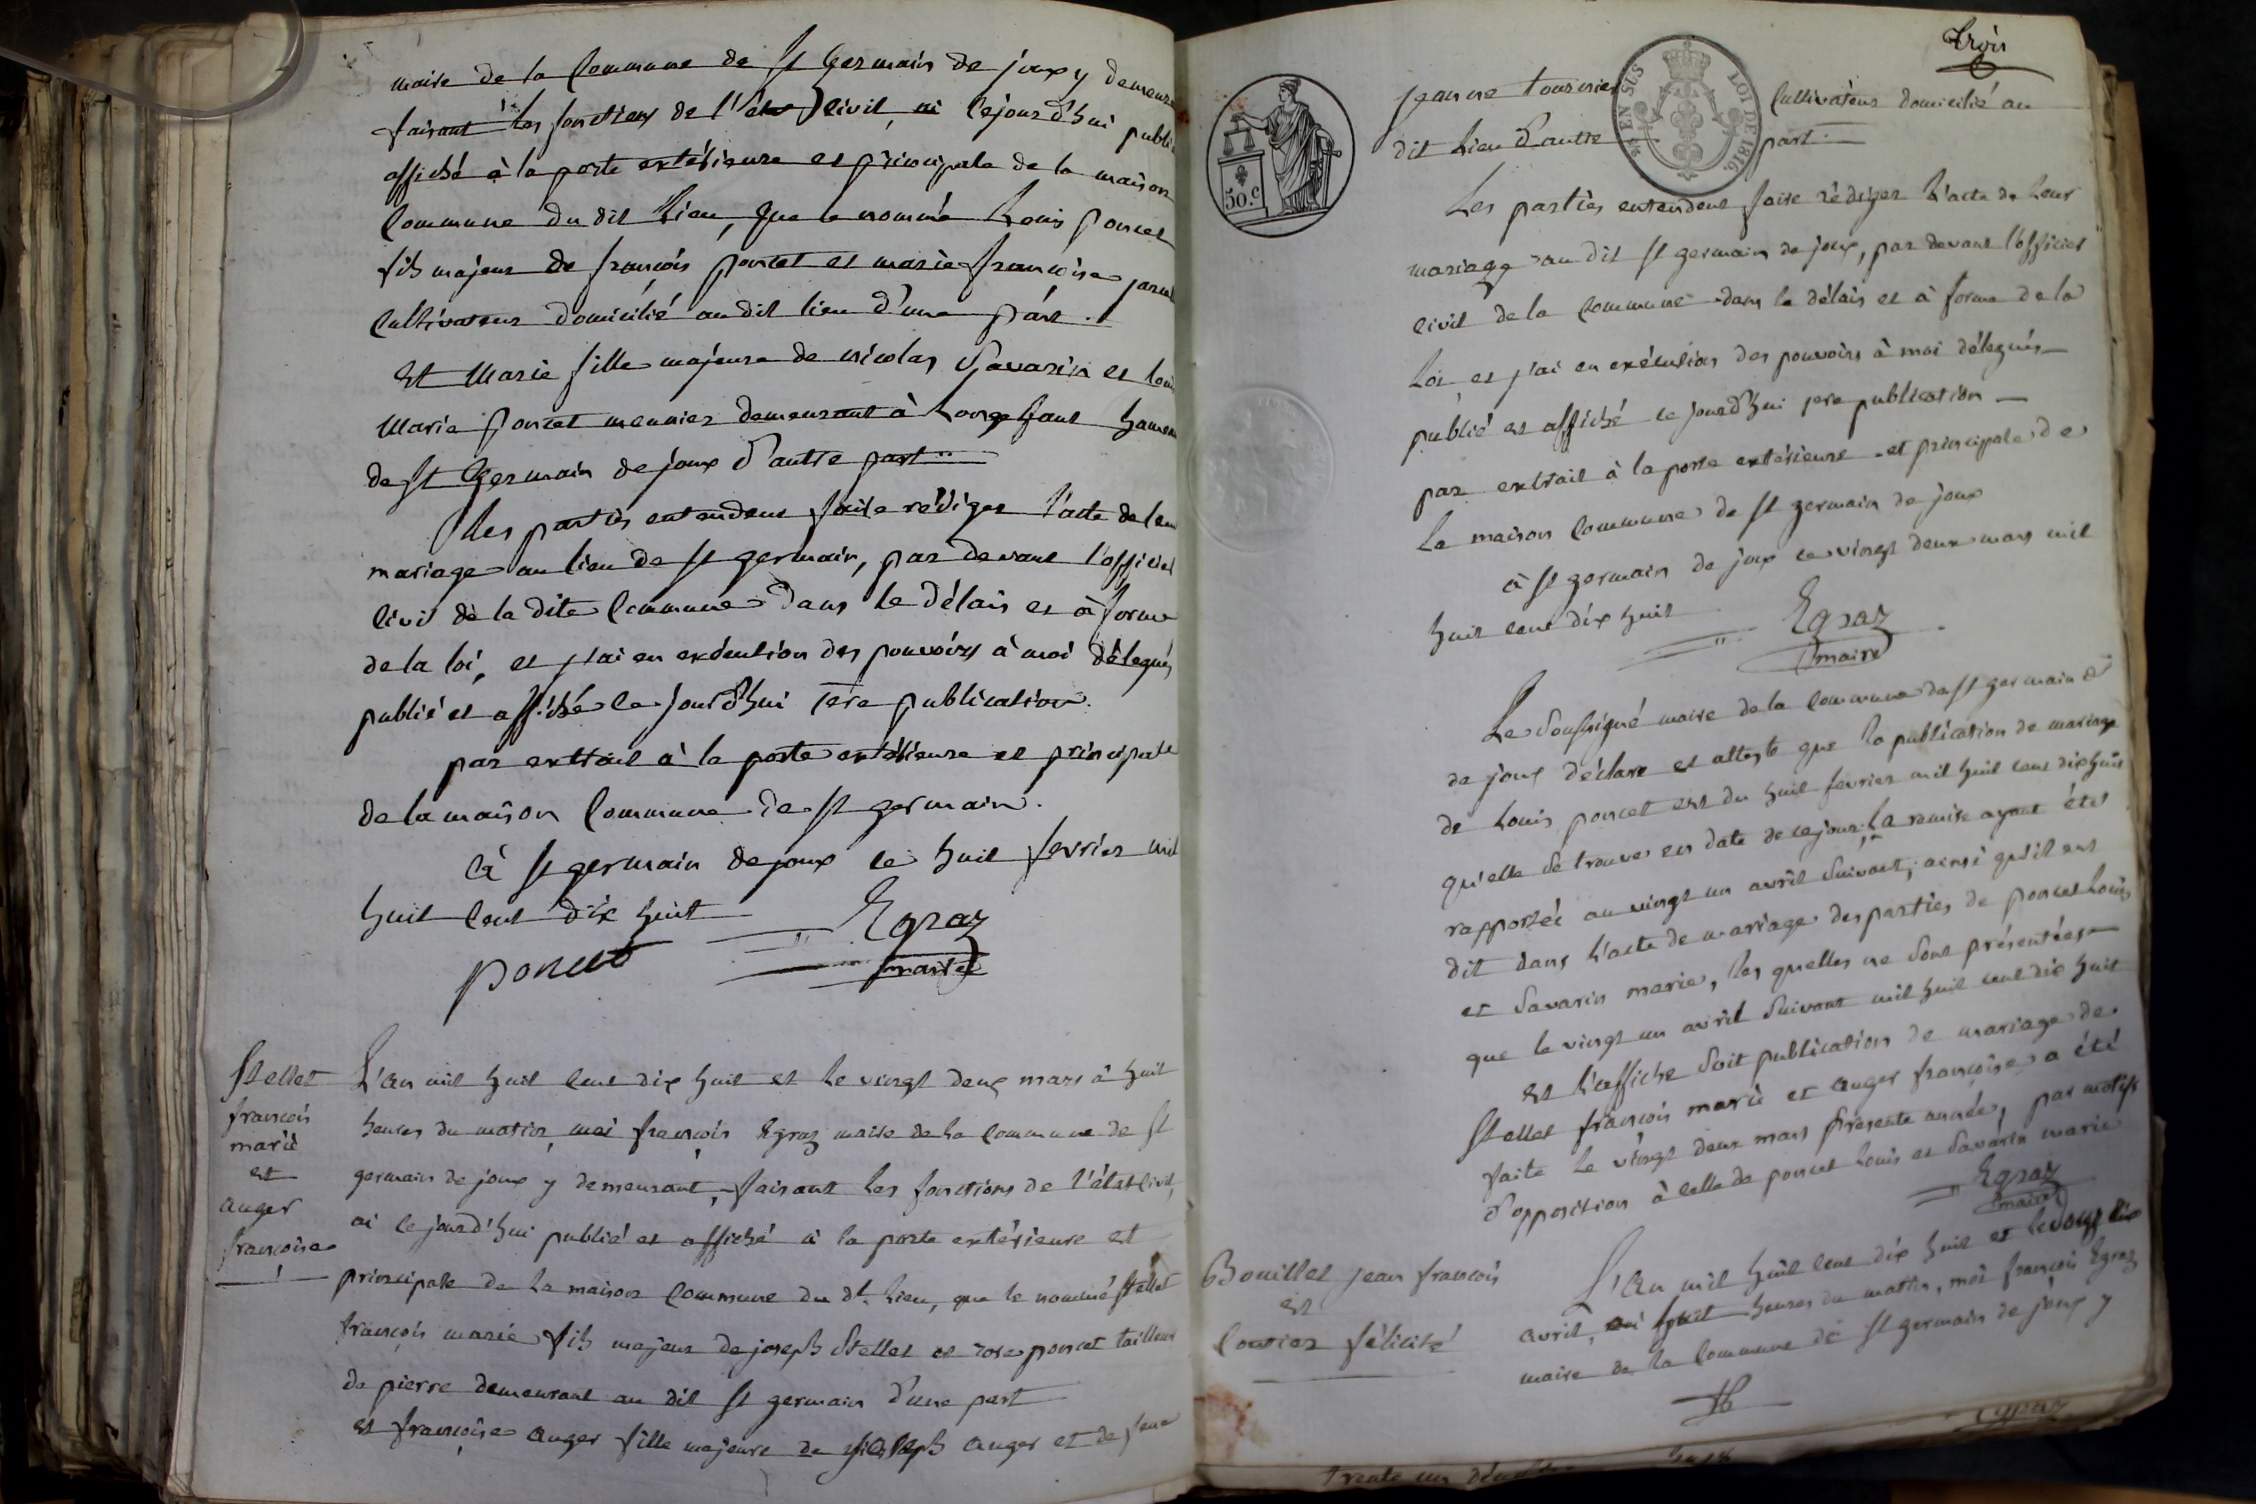 maire de la Commune de St Germain de joux y demeura
faisant les fonctions de l'état civil, ai cejourd'hui publié
affiché à la porte extérieure et principale de la maison
Commune du dit Lieu, que le nommé Louis poncet
fils majeur de françois poncet et marie françoise
Cultivateur domicilié au dit lieu d'une part.
Et Marie fille majeure de nicolas Savarin et
Marie poncet meunier demeurant à Longefant hameau
de St Germain de joux d'autre part
Les parties entendent faire rédiger l'acte de leur
mariage au lieu de St germain, par devant l'officier
Civil de la dite Commune dans le délais et à forme
de la loi, et j'ai en exécution des pouvoirs à moi délegués
publié et affiché ce jourd'hui 1ere publication.
par extrait à la porte extérieure et principale
de la maison Commune de St germain.
à St germain de joux le huit fevrier mil
huit Cent dix huit
Egraz
poncet
maire
Stellet
françois
marie
et
auger
françoise
L'an mil huit Cent dix huit et le vingt deux mars à huit
heures du matin, moi françois Egraz maire de la Commune de St
germain de joux y demeurant, faisant les fonctions de l'état Civil,
ai cejourd'hui publié et affiché à la porte extérieure et
principale de la maison Commune du dt. Lieu, que le nommé Stellet
françois marie fils majeur de joseph Stellet et rose poncet tailleur
de pierre demeurant au dit St germain d'une part
et françoise auger fille majeure de joseph auger et de feue
trois
EN SUS
LOI DE 1816
50.c
jeanne tournier Cultivateur domicilié au
dit Lieu d'autre part
Les parties entendent faire rédiger L'acte de Leur
mariage au dit St germain de joux, par devant l'officier
Civil de la Commune dans le délais et à forme de la
Loi et j'ai en exécution des pouvoirs à moi délegués
publié et affiché ce jourd'hui 1ere publication
par extrait à la porte extérieure et principale de
La maison Commune de St germain de joux
à St germain de joux ce vingt deux mars mil
huit Cent dix huit
Egraz
maire
Le Soussigné maire de la Commune de St germain
de joux déclare et atteste que la publication de mariage
de Louis poncet est du huit fevrier mil huit Cent dix huit
qu'elle se trouve en date de ce jour: La remise ayant été
rapportée au vingt un avril Suivant, ainsi qu'il est
dit dans L'acte de mariage des parties de poncet Louis
et Savarin marie, Les quelles ne Sont présentées
que le vingt un avril Suivant mil huit Cent dix huit
et L'affiche Soit publication de mariage de
Stellet françois marie et auger françoise a été
faite Le vingt deux mars présente année, par motifs
d'opposition à Celle de poncet Louis et Savarin marie
Egraz
maire
Bouillet jean françois
et
Coutier félicité
L'an mil huit Cent dix huit et le douze
avril, huit heures du matin, moi françois Egraz
maire de la Commune de St germain de joux y
Egraz
trente un